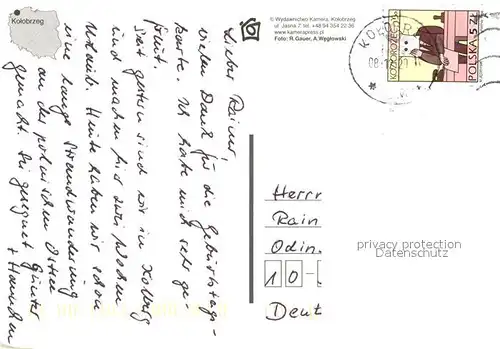 Kołobrzeg
© Wydawnictwo Kamera, Kołobrzeg
ul. Jasna 7 tel. +48 94 354 22 36
www.kamerapress.pl
Foto: R.Gauer, A.Węgłowski
KOZIOROŻEC
POLSKA 5 ZŁ
Lieber Rainer
vielen Dank für die Geburtstags-
karte. Ich habe mich sehr ge-
freut.
Seit gestern sind wir in Kolberg
und machen hier zwei Wochen
Urlaub. Heute haben wir schon
eine lange Strandwanderung
an der polnischen Ostsee
gemacht. Sei gesegnet Günter
+ Hannchen
Herrn
Rain
Odin.
10-
Deut
privacy protection
Datenschutz